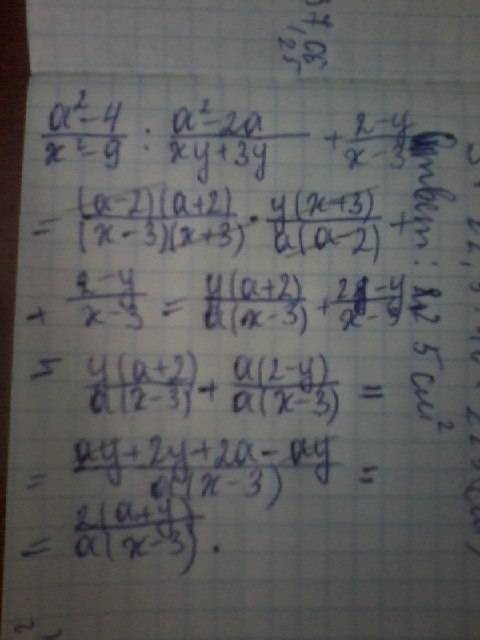 (a²-4)/(x²-9) : (a²-2a)/(xy+3y) + (2-y)/(x-3)
= (a-2)(a+2)/(x-3)(x+3) · y(x+3)/a(a-2) +
+ (2-y)/(x-3) = y(a+2)/a(x-3) + (2-y)/(x-3)
= y(a+2)/a(x-3) + a(2-y)/a(x-3) =
= (ay+2y+2a-ay)/a(x-3) =
= 2(a+y)/a(x-3).
Ответ: 5 см²